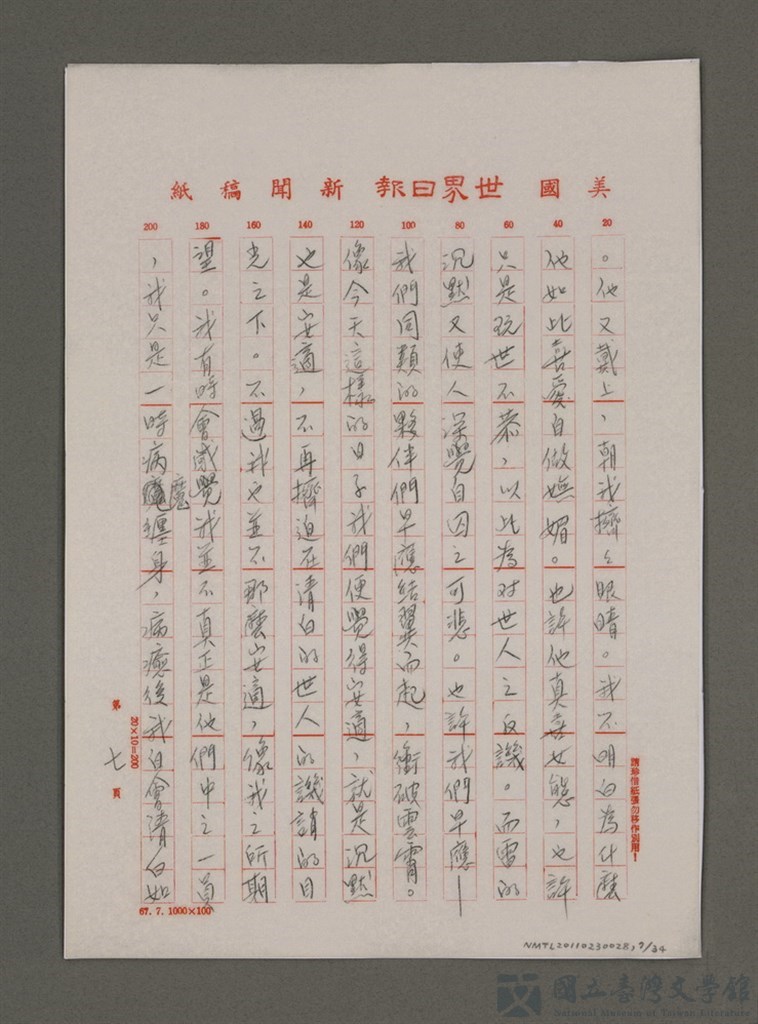 美國世界日報新聞稿紙
20 40 60 80 100 120 140 160 180 200
。他又戴上，朝我擠々眼睛。我不明白為什麼
他如此喜愛自做嫵媚。也許他真喜女態，也許
只是玩世不恭，以此為对世人之反譏。而雷的
沉默又使人深覺自囚之可悲。也許我們早應—
我們同類的夥伴們早應結翼而起，衝破雲霄。
像今天這樣的日子我們便覺得安適，就是沉默
也是安適，不再擠迫在清白的世人的譏誚的目
光之下。不過我也並不那麼安適，像我之所期
望。我有時會感覺我並不真正是他們中之一員
，我只是一時病魔纏身，病癒後我自會清白如
請珍惜紙張勿移作別用！
20×10=200
第七頁
67. 7. 1000×100
NMTL20110230028, 7/34
國立臺灣文學館
National Museum of Taiwan Literature